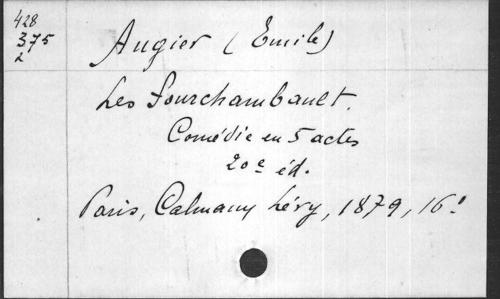 428
375
2
Augier (Emile)
Les Fourchambault.
Comédie en 5 actes
20e éd.
Paris, Calmann Lévy, 1879, 16°